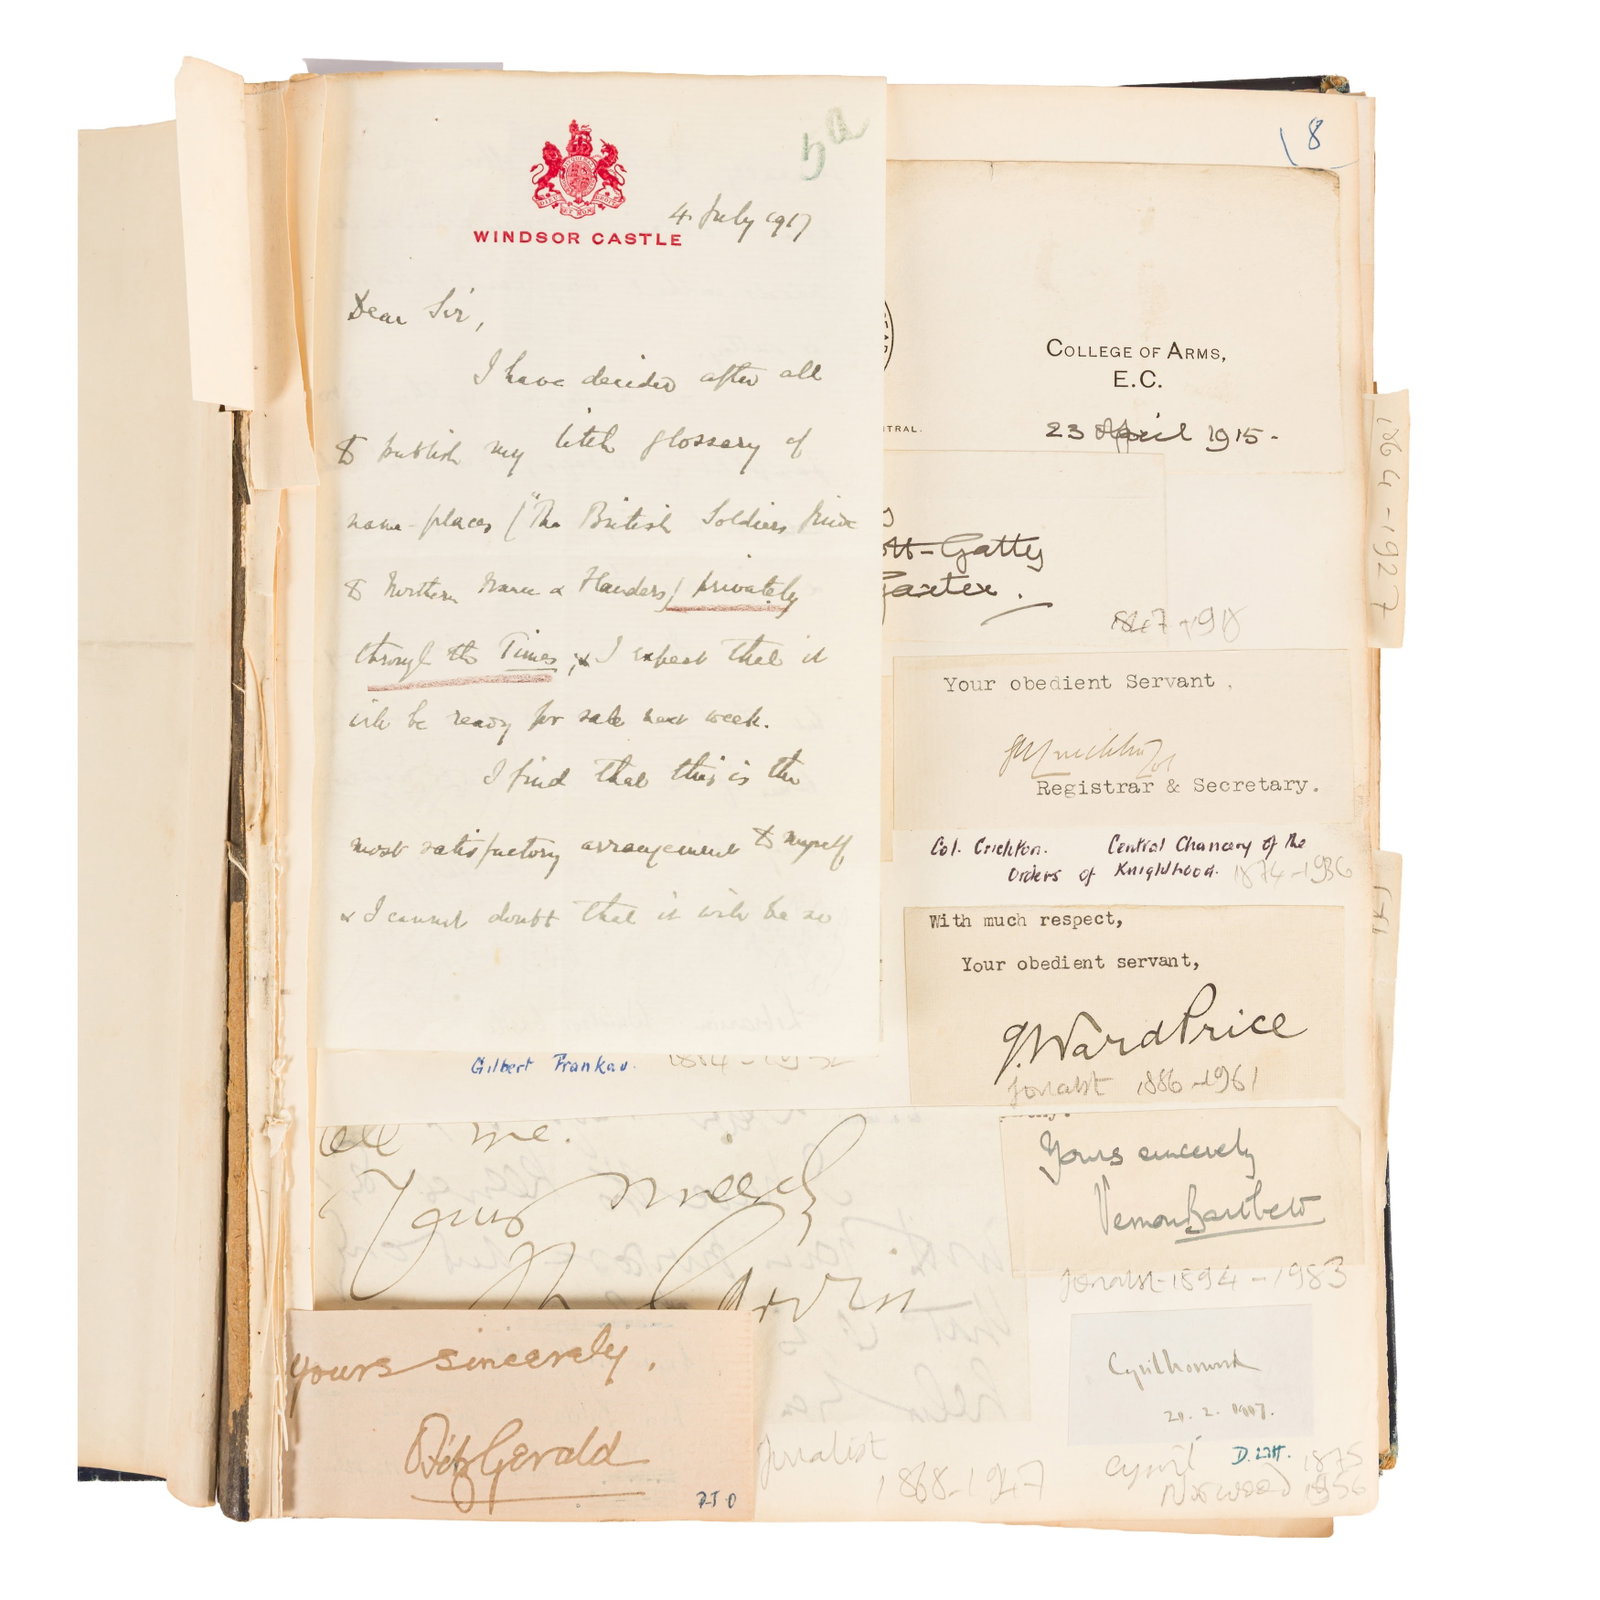 5a
WINDSOR CASTLE
4. July 1917
Dear Sir,
I have decided after all
to publish my little glossary of
name-places ("The British Soldiers
to Northern France & Flanders) privately
through the Times, & I expect that it
will be ready for sale next week.
I find that this is the
most satisfactory arrangement to myself
& I cannot doubt that it will be so
Gilbert Frankau.
me.
Yours sincerely,
FitzGerald
P.T.O
Jornalist
1868-1947
8
COLLEGE OF ARMS,
E.C.
TRAL.
23 April 1915-
tt-Gatty
Garter.
Your obedient Servant,
Registrar & Secretary.
Col. Crichton. Central Chancery of the
Orders of Knighthood. 1874-1936
With much respect,
Your obedient servant,
G. Ward Price
Jornalst 1886-1961
Yours sincerely
Vernon Bartlett
Jornalst-1894-1983
Cyril Norwood
20. 2. 1917.
Cyril D. Litt. 1875
Norwood 1956
1864-1927